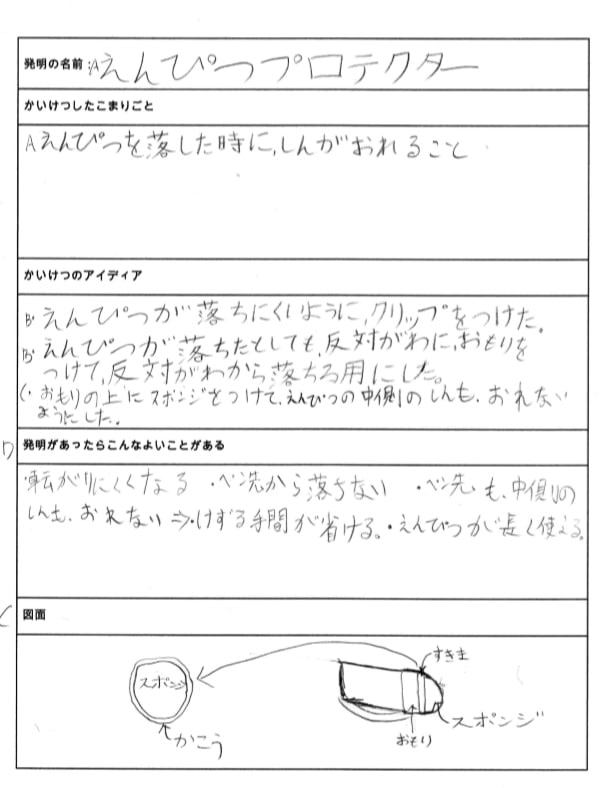 発明の名前:Aえんぴつプロテクター
かいけつしたこまりごと
Aえんぴつを落した時に,しんがおれること
かいけつのアイディア
B・えんぴつが落ちにくいように,クリップをつけた。
B・えんぴつが落ちたとしても,反対がわに,おもりを
つけて,反対がわから落ちる用にした。
C・おもりの上にスポンジをつけて,えんぴつの中側のしんも,おれない
ようにした。
D 発明があったらこんなよいことがある
・転がりにくくなる ・ペン先から落ちない ・ペン先も,中側の
しんも,おれない⇒・けずる手間が省ける。・えんぴつが長く使える。
C 図面
すきま
スポンジ
スポンジ
かこう
おもり